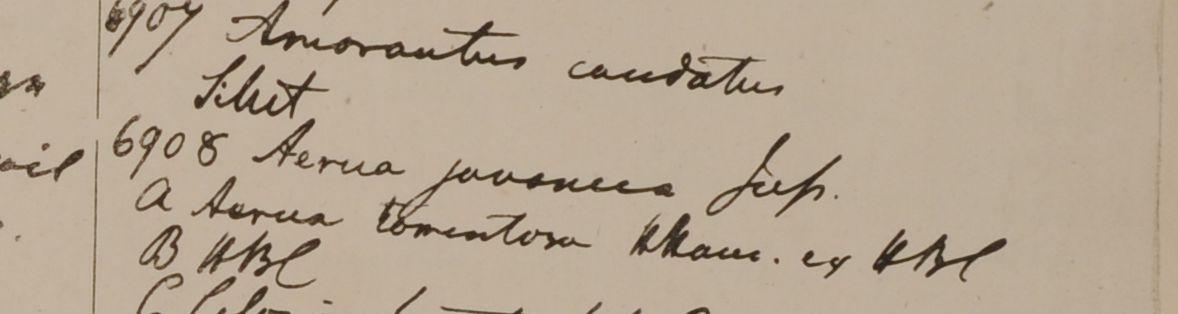 6907 Amorantus caudatus
Silhet
6908 Aerua javanica Juss.
A Aerua tomentosa HHam. ex HBC
B HBC
C